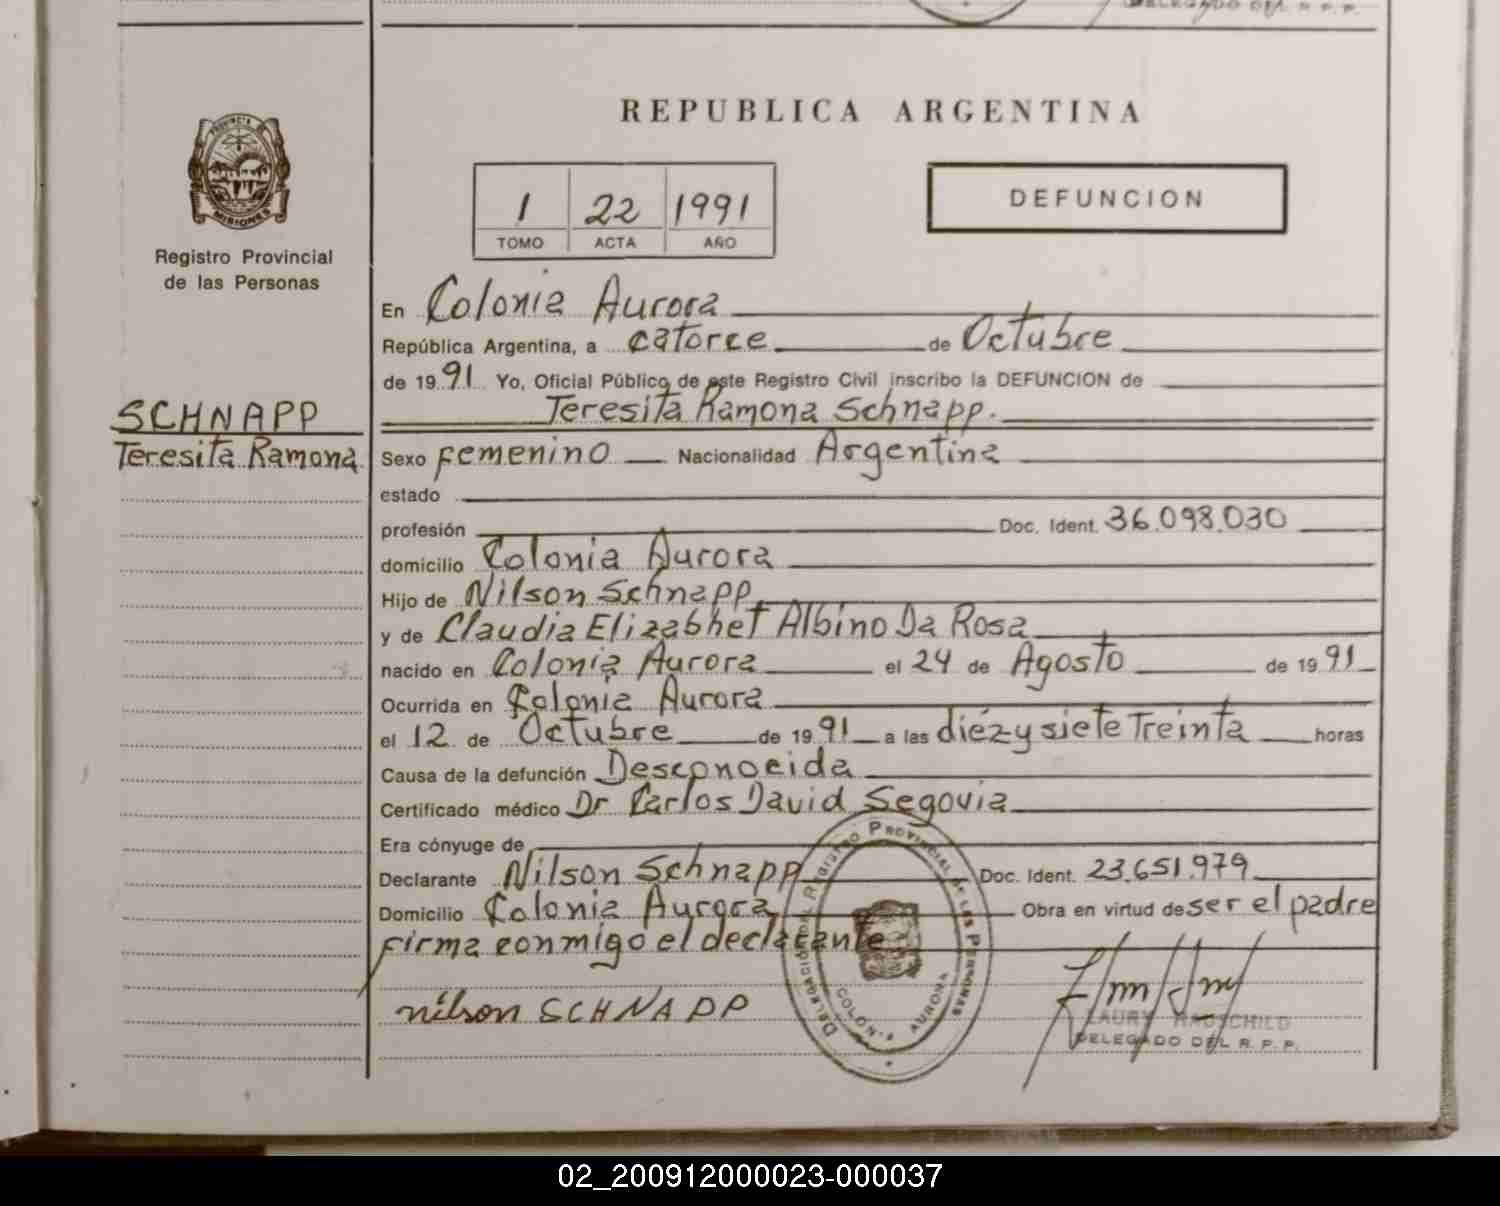 DELEGADO DEL R. P. P.
REPUBLICA ARGENTINA
PROVINCIA DE
MISIONES
Registro Provincial
de las Personas
1 22 1991
TOMO ACTA AÑO
DEFUNCION
En Colonia Aurora
República Argentina, a catorce de Octubre
de 1991 Yo, Oficial Público de este Registro Civil inscribo la DEFUNCION de
SCHNAPP
Teresita Ramona Schnapp.
Teresita Ramona
Sexo femenino Nacionalidad Argentina
estado
profesión Doc. Ident. 36.098.030
domicilio Colonia Aurora
Hijo de Nilson Schnapp
y de Claudia Elizabhet Albino Da Rosa
nacido en Colonia Aurora el 24 de Agosto de 1991
Ocurrida en Colonia Aurora
el 12 de Octubre de 1991 a las diéz y siete Treinta horas
Causa de la defunción Desconocida
Certificado médico Dr Carlos David Segovia
Era cónyuge de
Declarante Nilson Schnapp Doc. Ident. 23.651.979
Domicilio Colonia Aurora Obra en virtud de ser el padre
firma conmigo el declarante
DELEGACIÓN DEL REGISTRO PROVINCIAL DE LAS PERSONAS
COLONIA AURORA
nilson SCHNAPP
LAURY HAUSCHILD
DELEGADO DEL R. P. P.
02_200912000023-000037